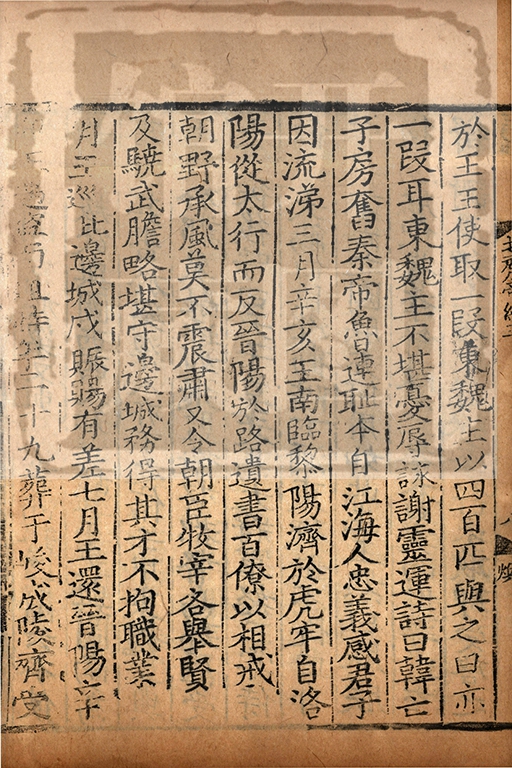 於王王使取一段東魏主以四百匹與之曰亦
一段耳東魏主不堪憂辱詠謝靈運詩曰韓亡
子房奮秦帝魯連耻本自江海人忠義感君子
因流涕三月辛亥王南臨黎陽濟於虎牢自洛
陽從太行而反晉陽於路遺書百僚以相戒
朝野承風莫不震肅又令朝臣牧宰各舉賢
及驍武膽略堪守邊城務得其才不拘職業
月王巡北邊城戍賑賜有差七月王還晉陽辛
年二十九葬于峻成陵齊受